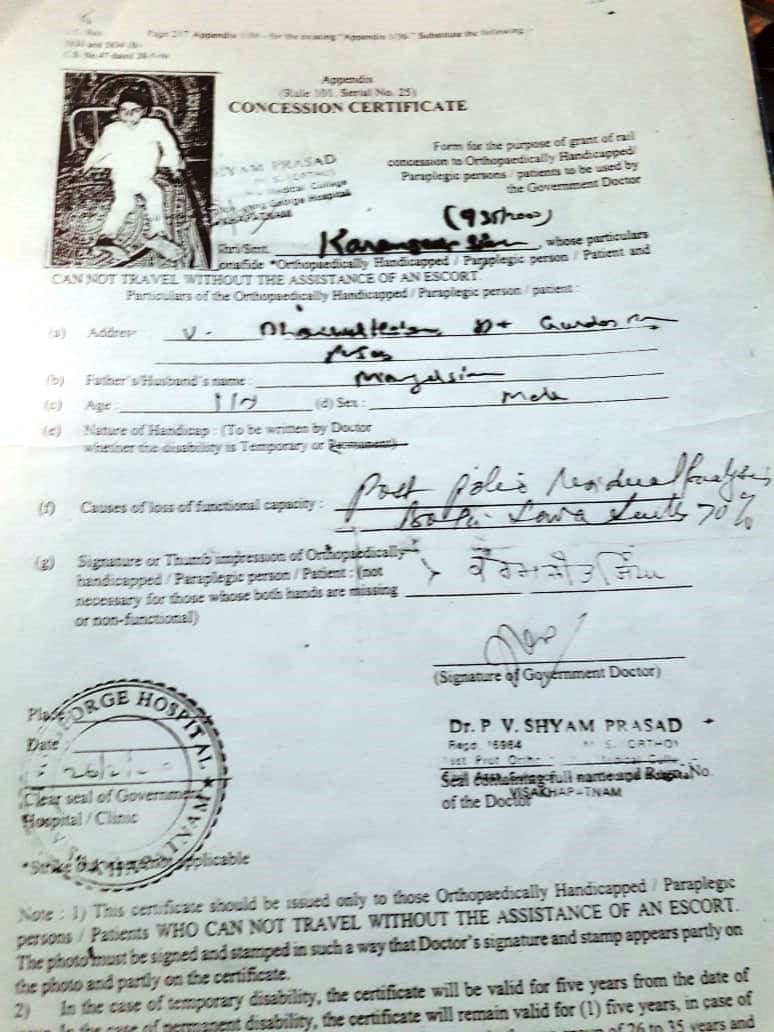 Page 217 Appendix 1/36 - for the existing "Appendix 1/36" Substitute the following :-
Appendix
(Rule 101, Serial No. 25)
CONCESSION CERTIFICATE
Form for the purpose of grant of rail
concession to Orthopaedically Handicapped/
Paraplegic persons / patients to be used by
the Government Doctor
SHYAM PRASAD
Medical College
George Hospital
Shri/Smt. whose particulars
*Orthopaedically Handicapped / Paraplegic person / Patient and
CAN NOT TRAVEL WITHOUT THE ASSISTANCE OF AN ESCORT.
Particulars of the Orthopaedically Handicapped / Paraplegic person / patient :
(a) Address V.
(b) Father's/Husband's name :
(c) Age : (d) Sex : Male
(e) Nature of Handicap : (To be written by Doctor
whether the disability is Temporary or Permanent)
(f) Causes of loss of functional capacity : Post Polio Residual Paralysis
Both Lower Limbs 70%
(g) Signature or Thumb impression of Orthopaedically
handicapped / Paraplegic person / Patient : (not
necessary for those whose both hands are missing
or non-functional)
(Signature of Government Doctor)
Place
GEORGE HOSPITAL
Date
Dr. P. V. SHYAM PRASAD
Clear seal of Government
Hospital / Clinic
Seal containing full name and Regn. No.
of the Doctor
VISAKHAPATNAM
*Strike Out applicable
Note : 1) This certificate should be issued only to those Orthopaedically Handicapped / Paraplegic
persons / Patients WHO CAN NOT TRAVEL WITHOUT THE ASSISTANCE OF AN ESCORT.
The photo must be signed and stamped in such a way that Doctor's signature and stamp appears partly on
the photo and partly on the certificate.
2) In the case of temporary disability, the certificate will be valid for five years from the date of
In the case of permanent disability, the certificate will remain valid for (1) five years, in case of
of 26 to 35 years and